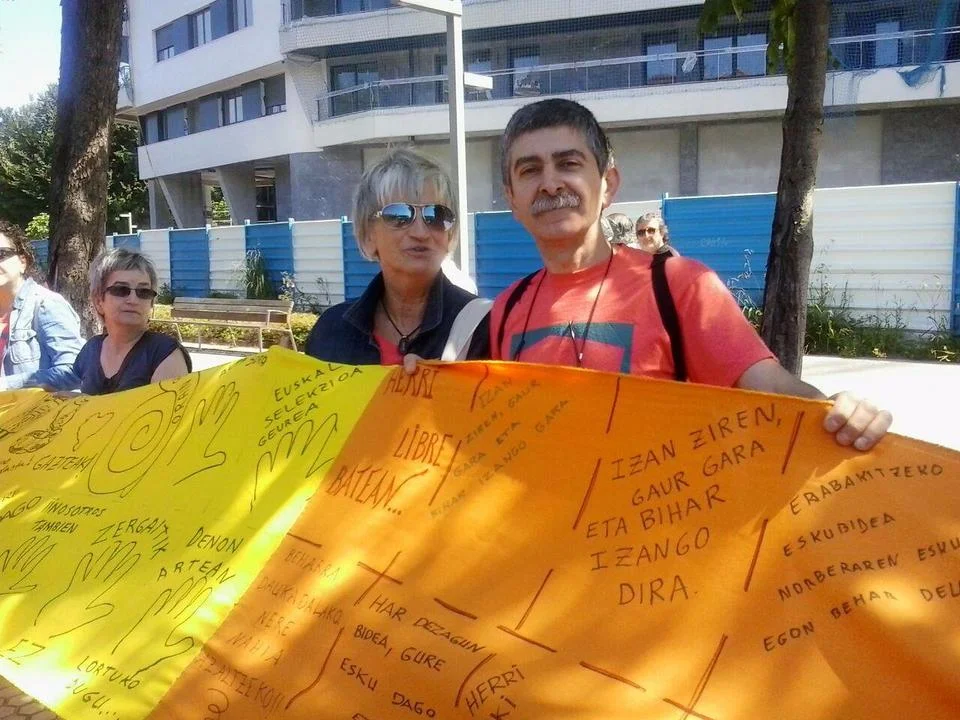 GAZTEAK
EUSKAL
SELEKZIOA
GEUREA
DAGO
¡NOSOTROS
TAMBIEN
ZERGATIK
DENON
ARTEAN
EZ
LORTUKO
DUGU...
HERRI
LIBRE
BATEAN...
IZAN
ZIREN, GAUR
GARA ETA
BIHAR IZANGO GARA
BEHARRA
DAUKAGALAKO
NERE
NAHIA
HAR DEZAGUN
BIDEA, GURE
ESKU DAGO
HERRI
IZAN ZIREN,
GAUR GARA
ETA BIHAR
IZANGO
DIRA.
ERABAKITZEKO
ESKUBIDEA
NORBERAREN ESKU
EGON BEHAR